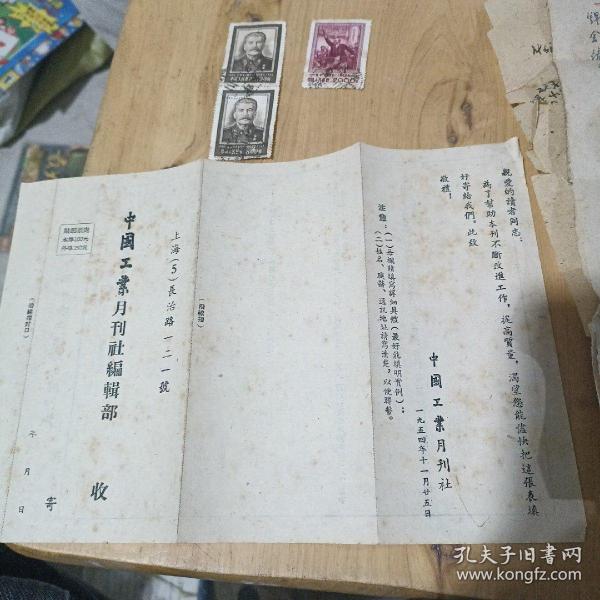 親愛的讀者同志：
為了幫助本刊不斷改進工作，提高質量，渴望您能儘快把這張表填
好寄給我們。此致
敬禮！
中國工業月刊社
一九五四年十一月廿五日
注意：(一)每欄請填寫詳細具體(最好能填明實例)；
(二)姓名、職務、通訊地址請寫清楚，以便聯繫。
上海(5)長治路一二一號
中國工業月刊社編輯部
收
寄
年 月 日
2000
孔夫子旧书网
www.kongfz.com